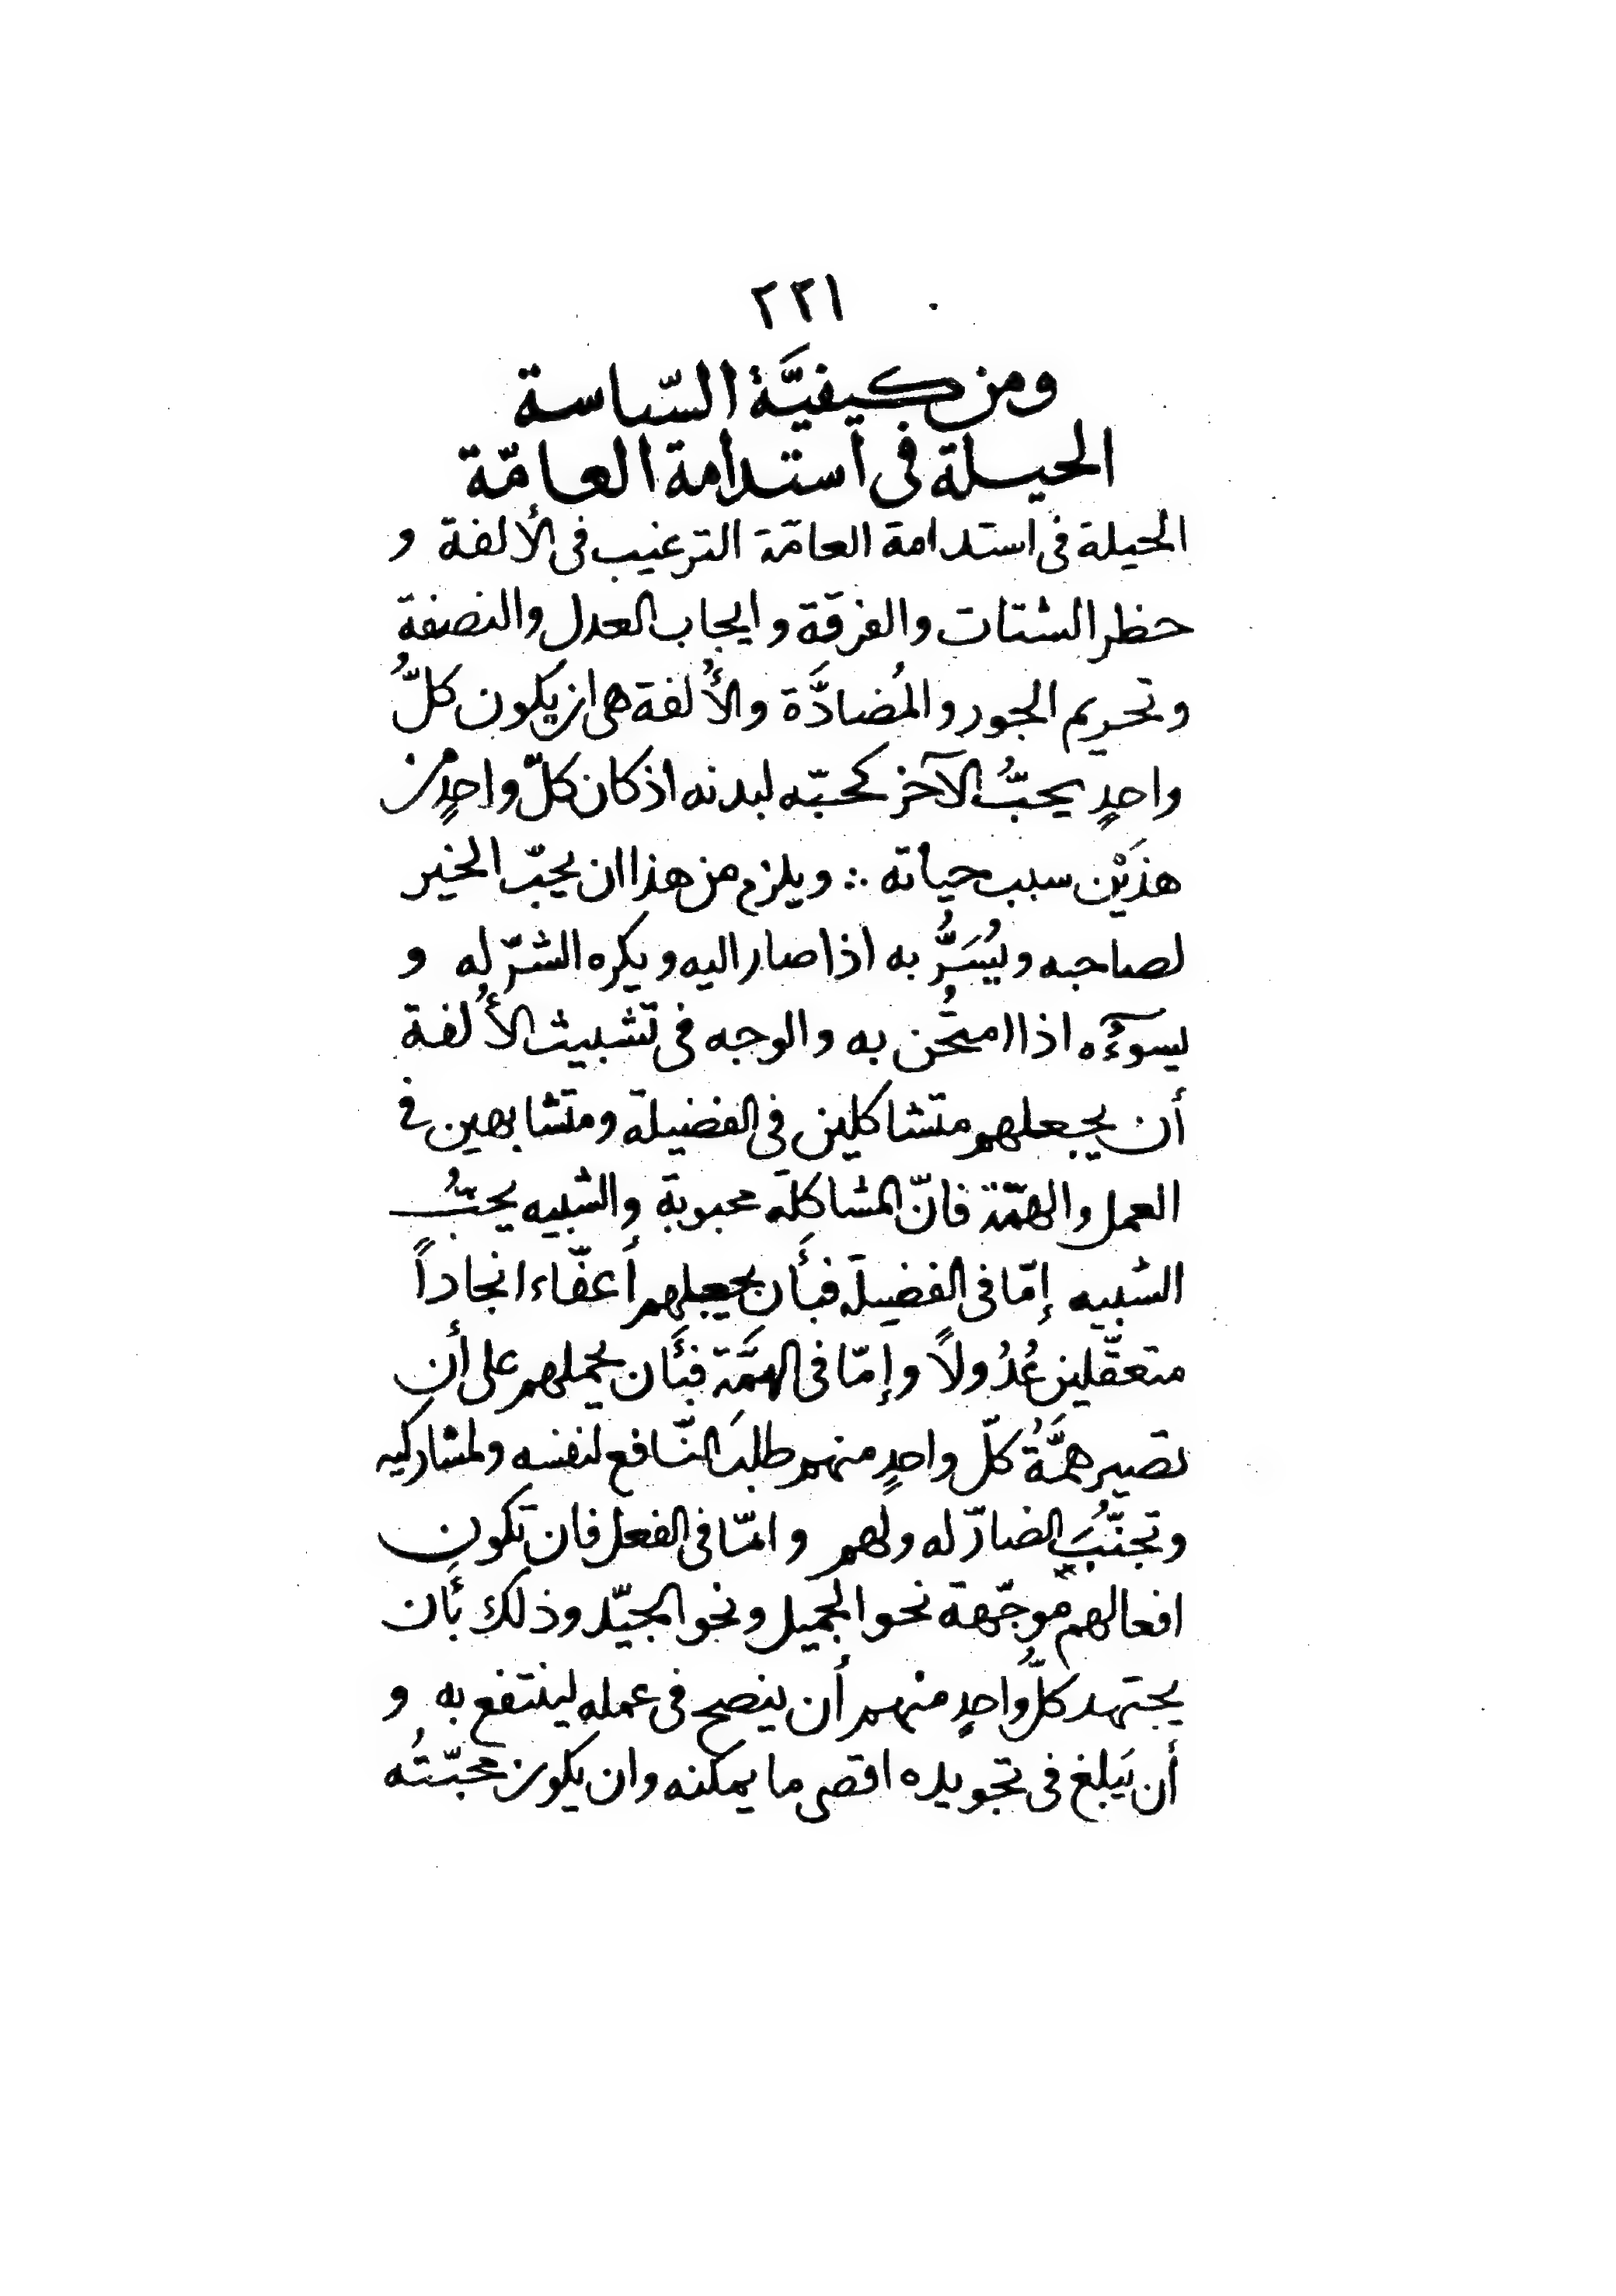 ٢٢١
ومن كيفيَّة السّياسة
الحيلة في استدامة العامّة
الحيلة فى استدامة العامّة الترغيب فى الألفة و
حظر الشتات والفرقة وايجاب العدل والنصفة
وتحريم الجور والمُضادَّة والأُلفة هى ان يكون كلُّ
واحدٍ يحبُّ الآخر كحبّه لبدنه اذ كان كلّ واحدٍ من
هذَيْن سبب حياته ∴ ويلزم من هذا ان يحبّ الخير
لصاحبه ويُسَرُّ به اذا صار اليه ويكره الشرّ له و
يسوءُه اذا امتُحن به والوجه فى تشبيث الأُلفة
أن يجعلهم متشاكلين فى الفضيلة ومتشابهين فى
العمل والهمّة فانّ المشاكلة محبوبة والشبيه يحبُّ
الشبيه إمّا فى الفضيلة فبأن يجعلهم أعفّاء انجاداً
متعقّلين عُدُولاً وإمّا فى الهمَّة فبَأن يحملهم على أن
تصير همَّةُ كلّ واحدٍ منهم طلبَ النّافع لنفسه ولمشاركيه
وتجنّبَُ الضارّ له ولهم وامّا فى الفعل فان تكون
افعالهم موجّهة نحو الجميل ونحو الجيّد وذلك بأن
يجتهد كلُّ واحدٍ منهم أن ينصح فى عمله لينتفع به و
أن يَبلغ فى تجويده اقصى ما يمكنه وان يكون محبّتُه